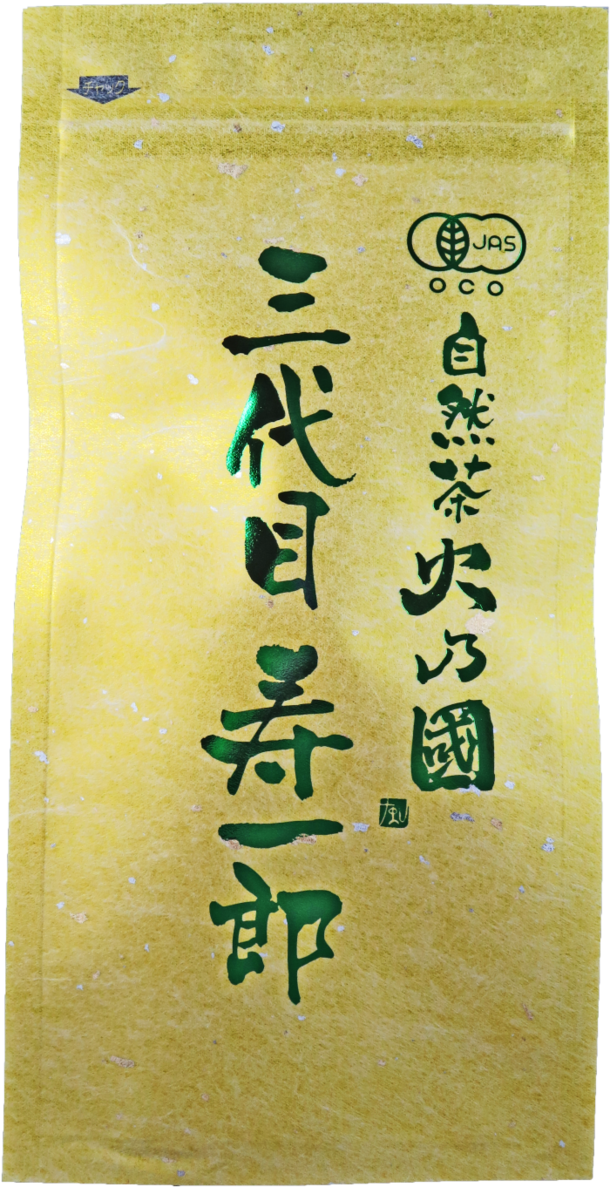 チャック
JAS
OCO
自然茶 火乃國
三代目 寿一郎